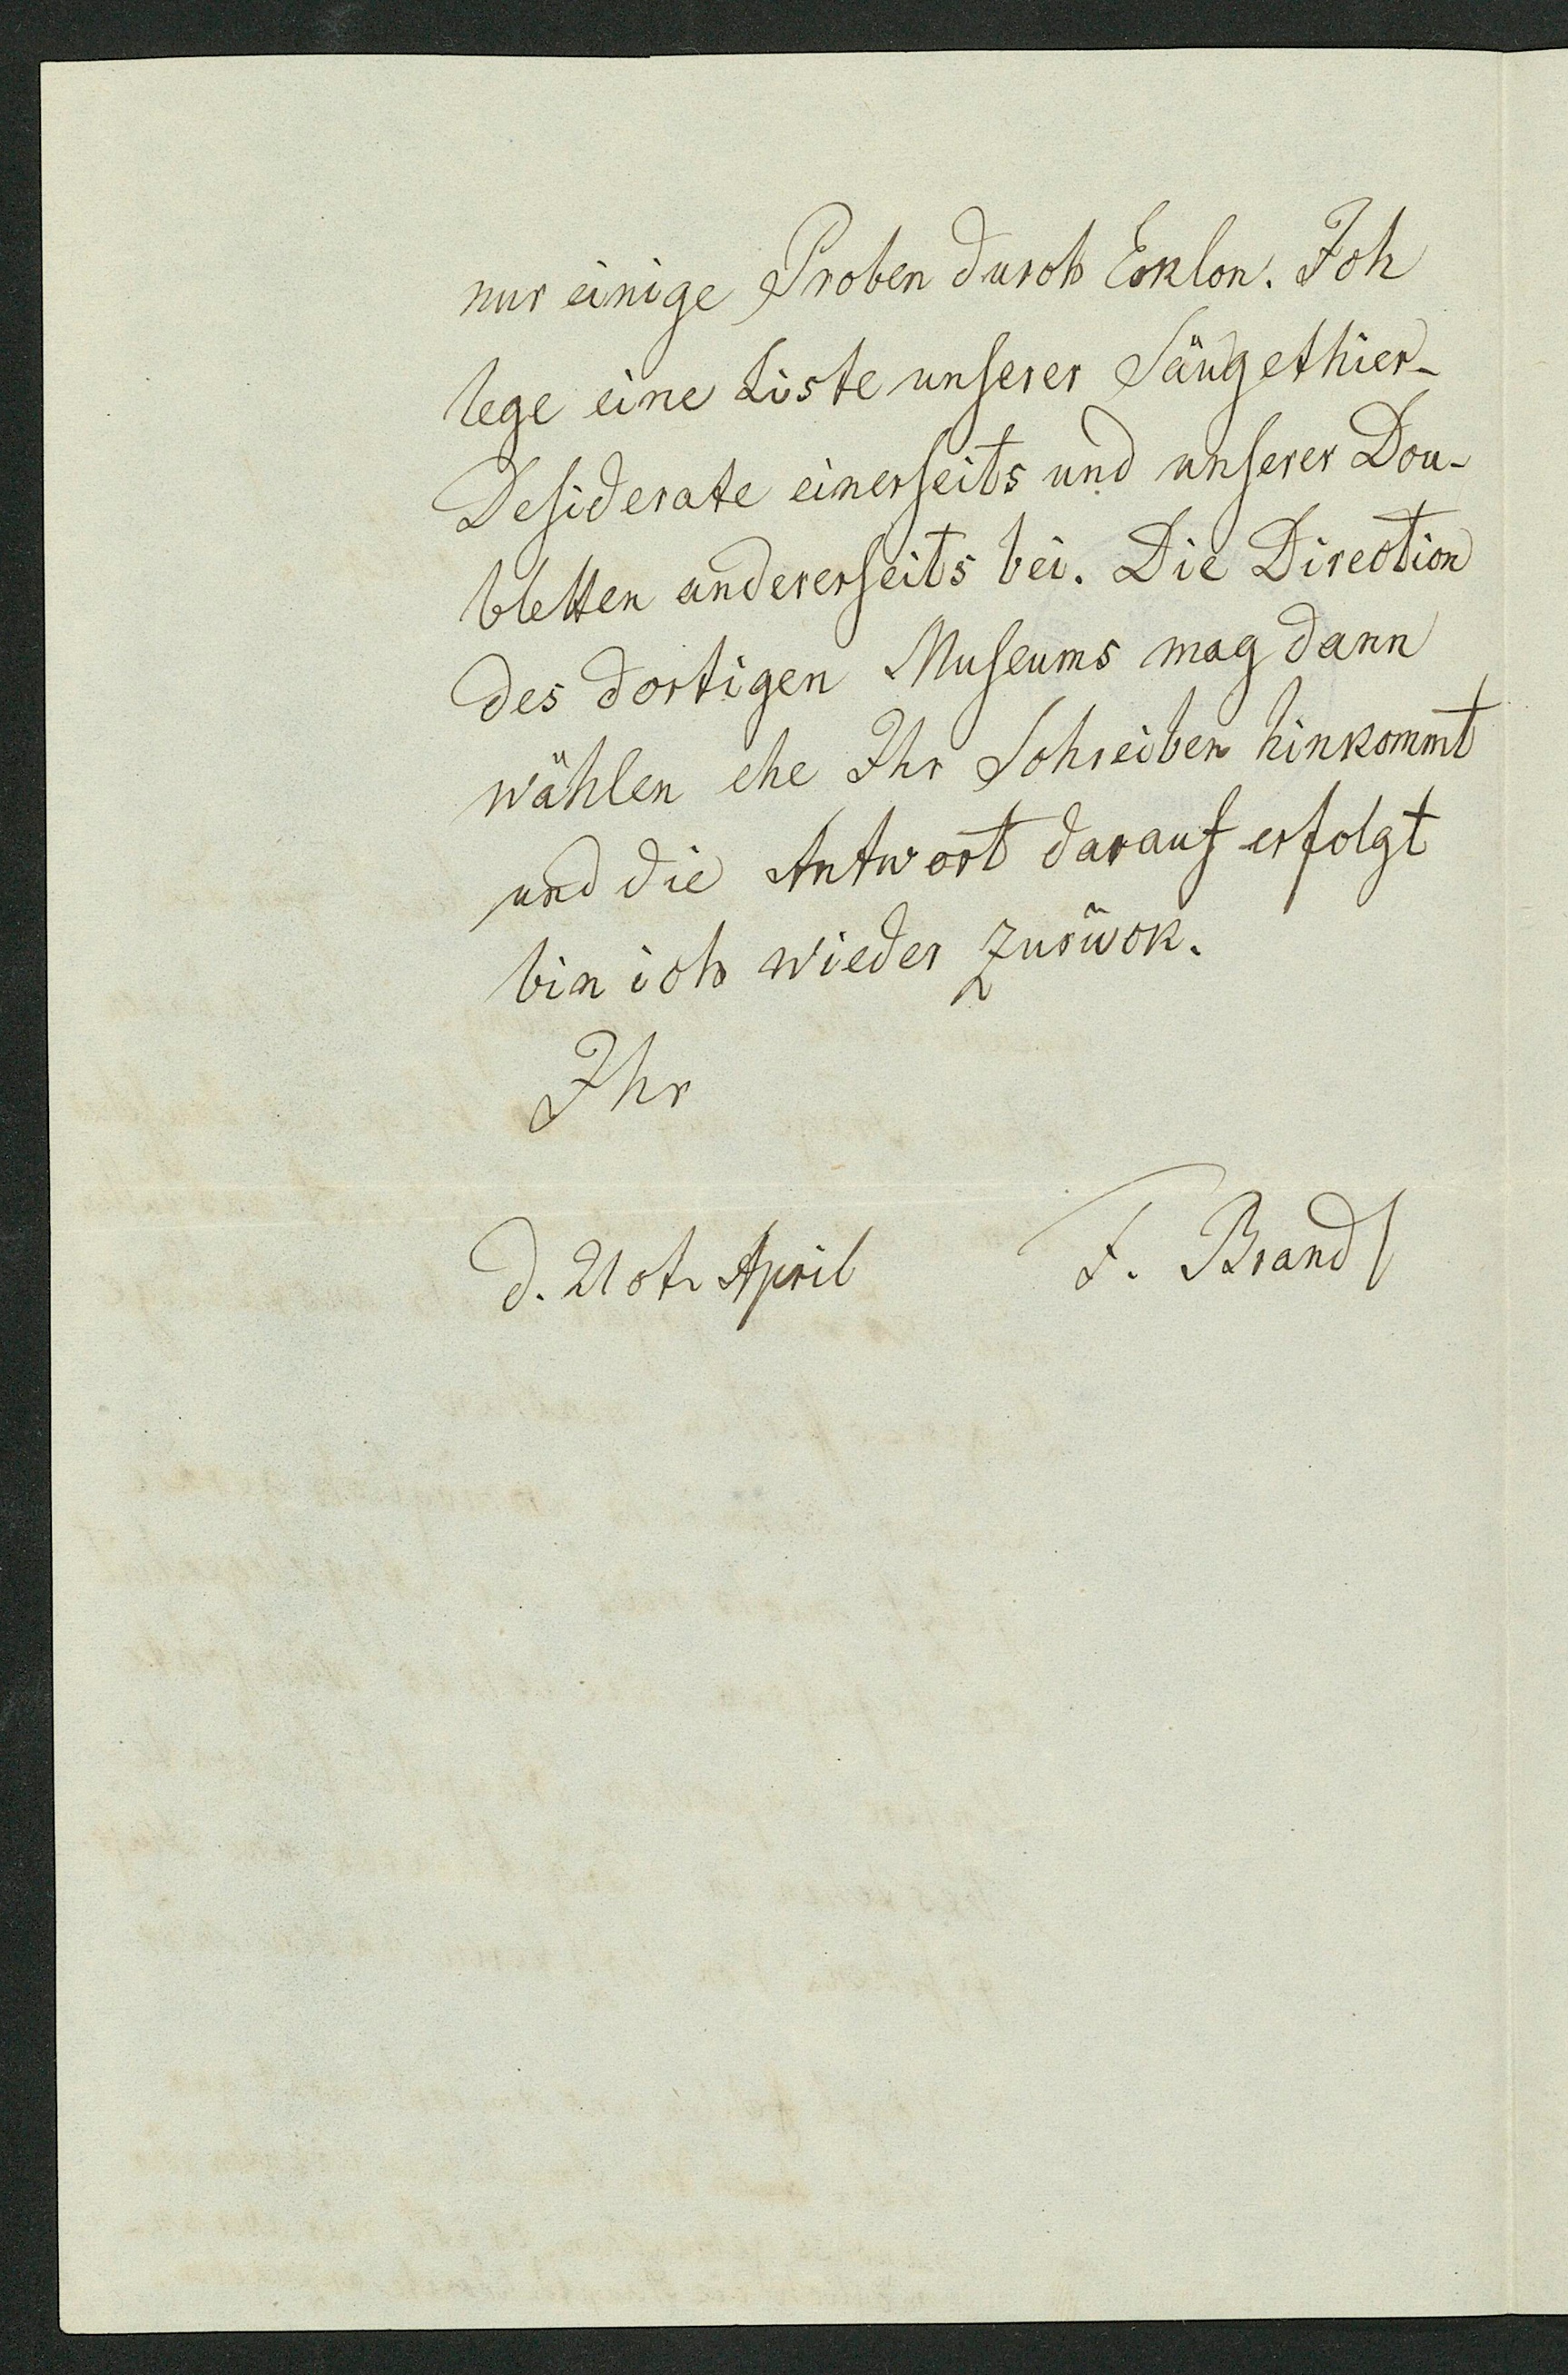 nur einige Proben durch Ecklon. Ich
lege eine Liste unserer Säugethier-
Desiderate einerseits und unserer Dou-
bletten andererseits bei. Die Direction
des dortigen Museums mag dann
wählen ehe Ihr Schreiben hinkommt
und die Antwort darauf erfolgt
bin ich wieder zurück.
Ihr
d. 21st April F. Brandt